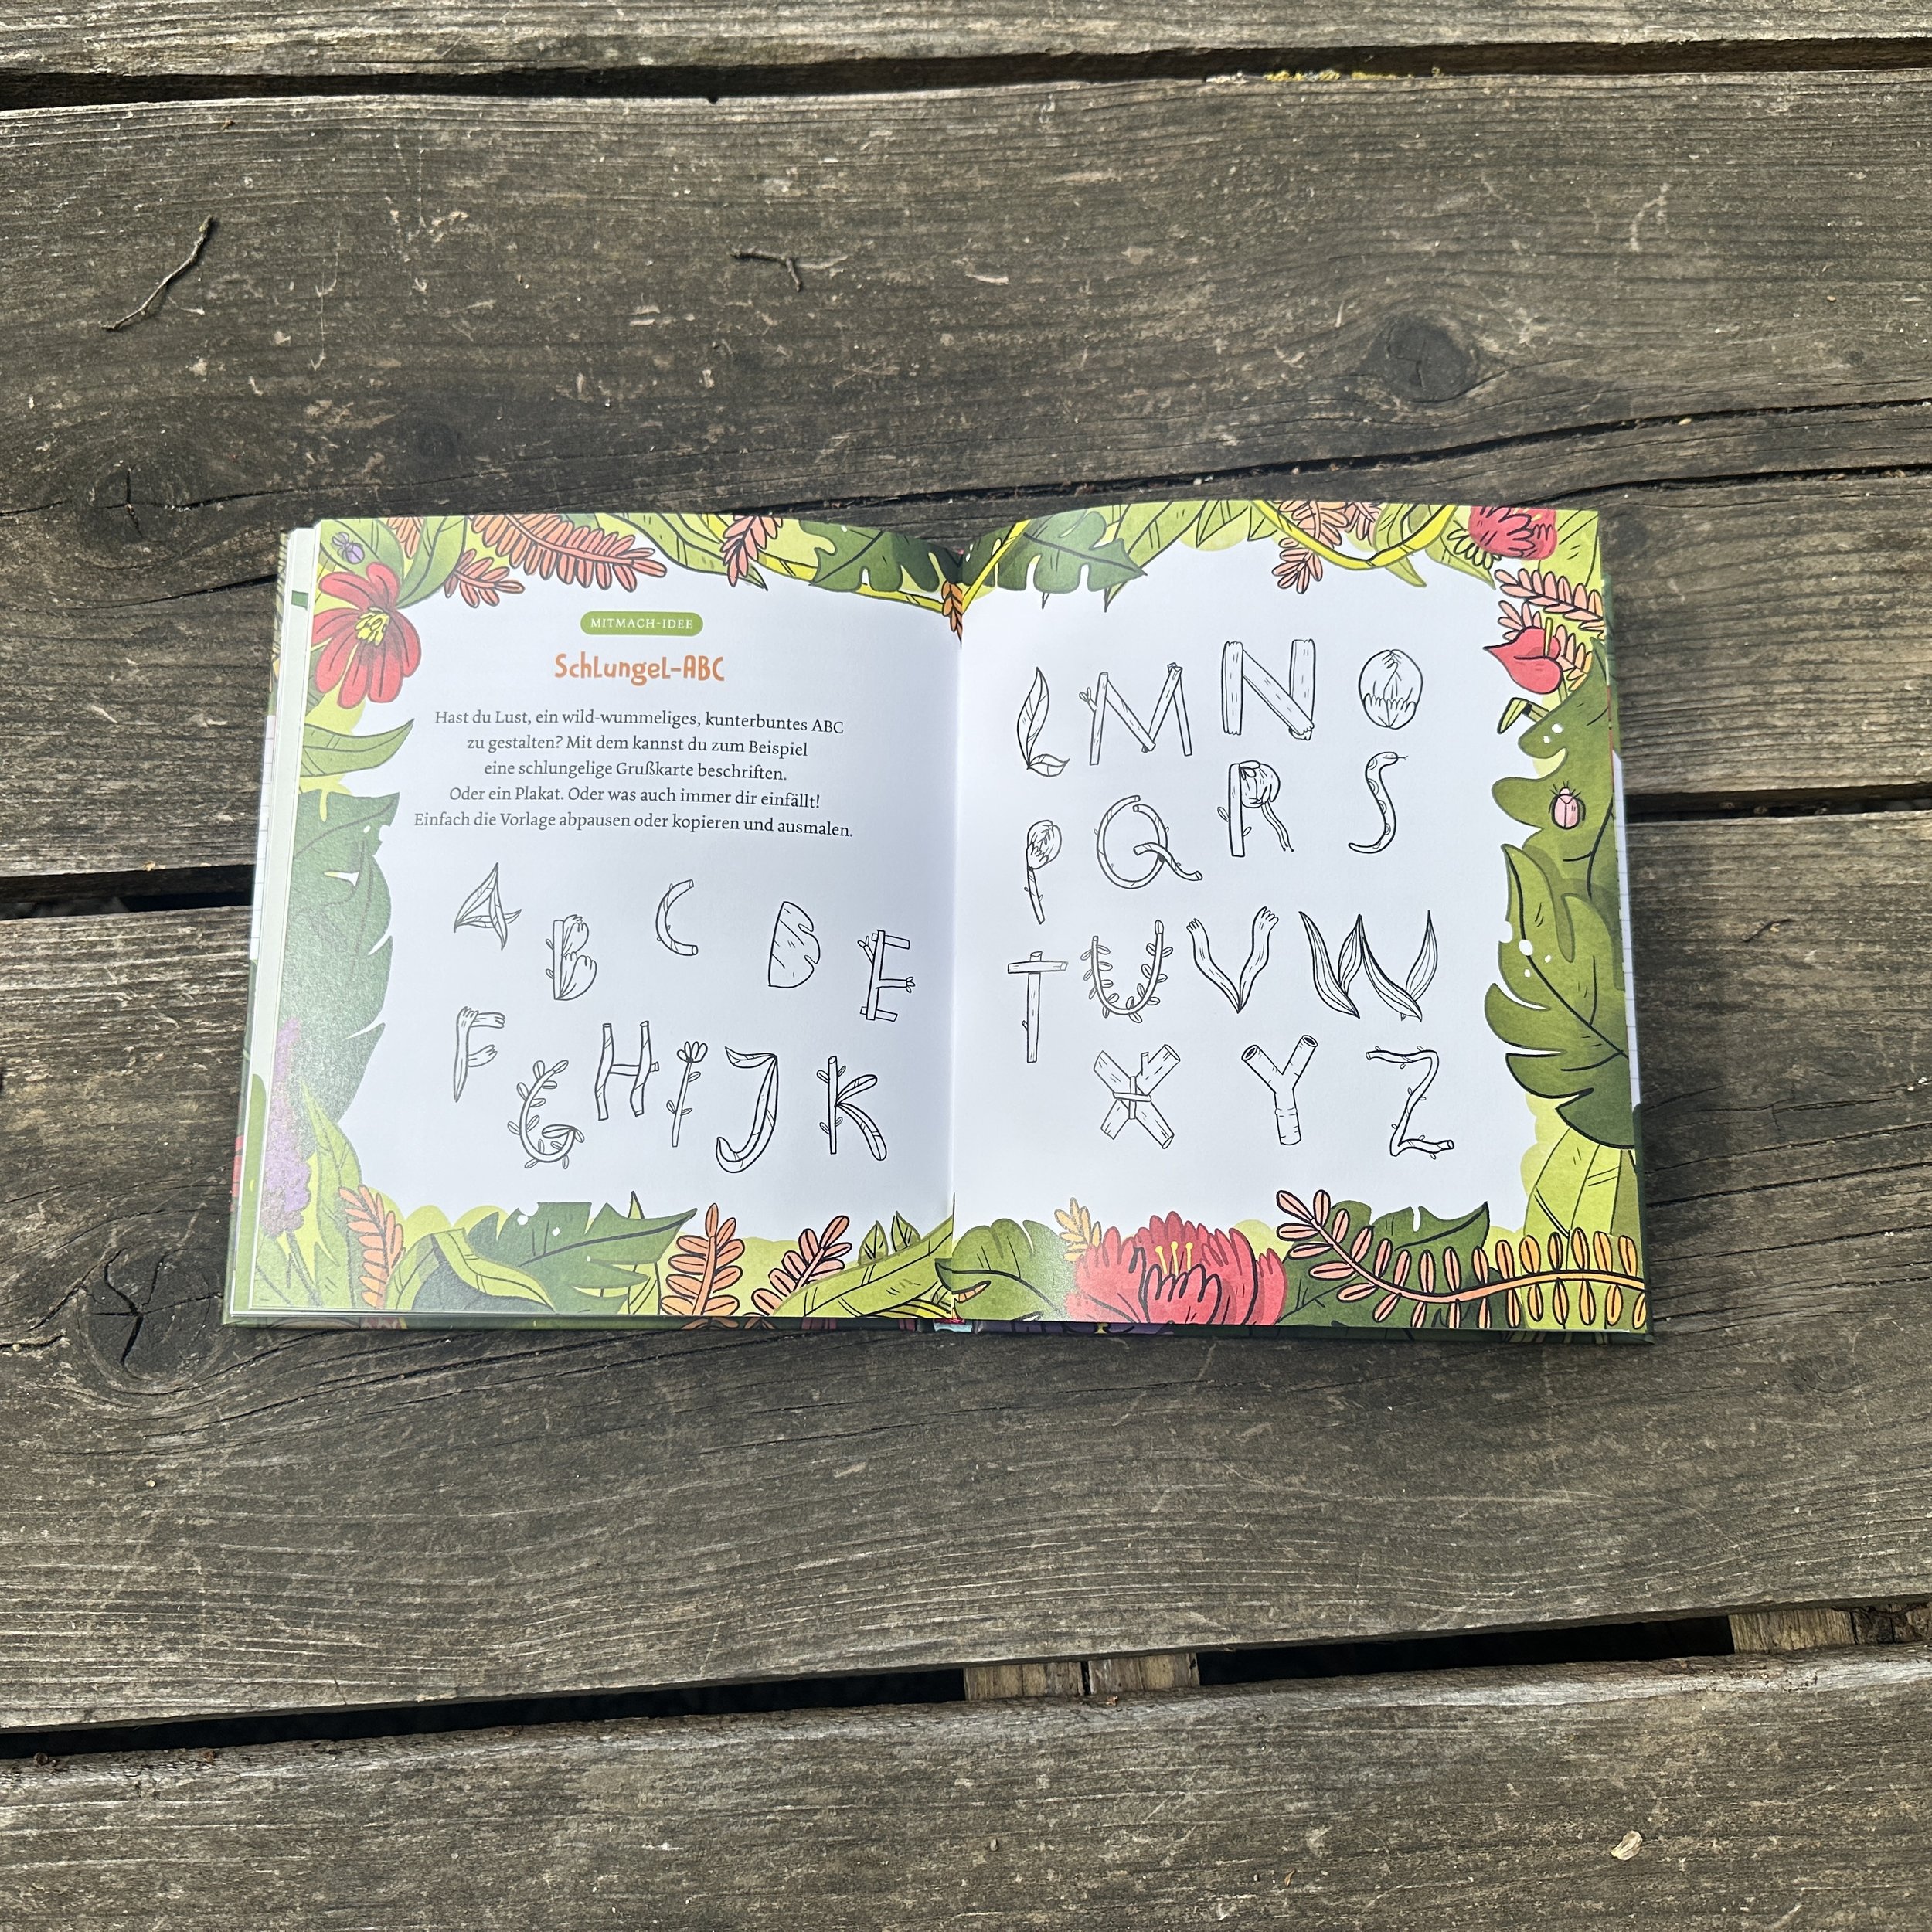 MITMACH-IDEE
Schlungel-ABC
Hast du Lust, ein wild-wummeliges, kunterbuntes ABC
zu gestalten? Mit dem kannst du zum Beispiel
eine schlungelige Grußkarte beschriften.
Oder ein Plakat. Oder was auch immer dir einfällt!
Einfach die Vorlage abpausen oder kopieren und ausmalen.
A B C D E
F G H I J K
L M N O
P Q R S
T U V W
X Y Z